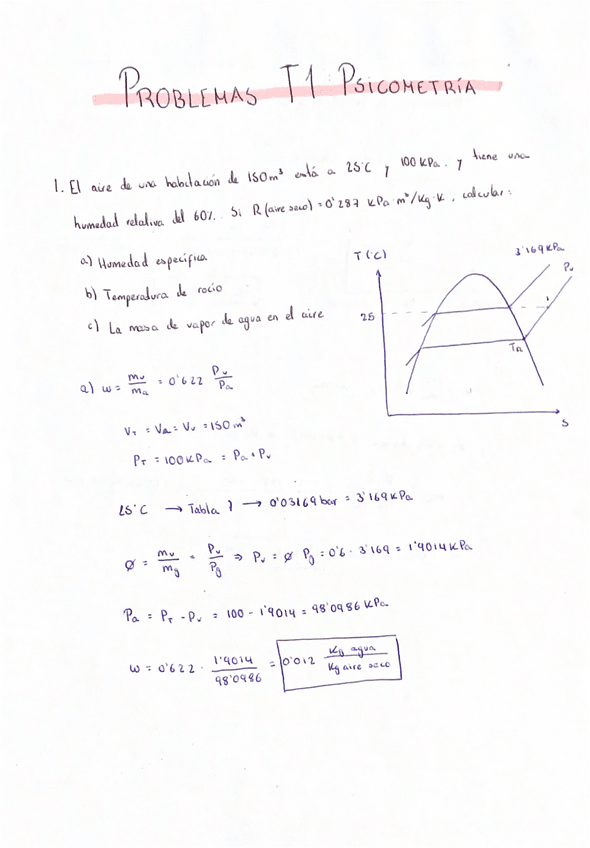 PROBLEMAS T1 PSICOMETRÍA
1. El aire de una habitación de 150 m³ está a 25°C y 100 KPa. y tiene una
humedad relativa del 60%. Si R (aire seco) = 0'287 KPa·m³/Kg·K, calcular:
a) Humedad específica
b) Temperatura de rocío
c) La masa de vapor de agua en el aire
T (°C)
3'169 KPa
Pv
25
TR
S
a) ω = mv/ma = 0'622 Pv/Pa
VT = Va = Vv = 150 m³
PT = 100 KPa = Pa + Pv
25°C → Tabla → 0'03169 bar = 3'169 KPa
Ø = mv/mg = Pv/Pg ⇒ Pv = Ø Pg = 0'6 · 3'169 = 1'9014 KPa
Pa = PT - Pv = 100 - 1'9014 = 98'0986 KPa
ω = 0'622 · 1'9014/98'0986 = 0'012 Kg agua/Kg aire seco